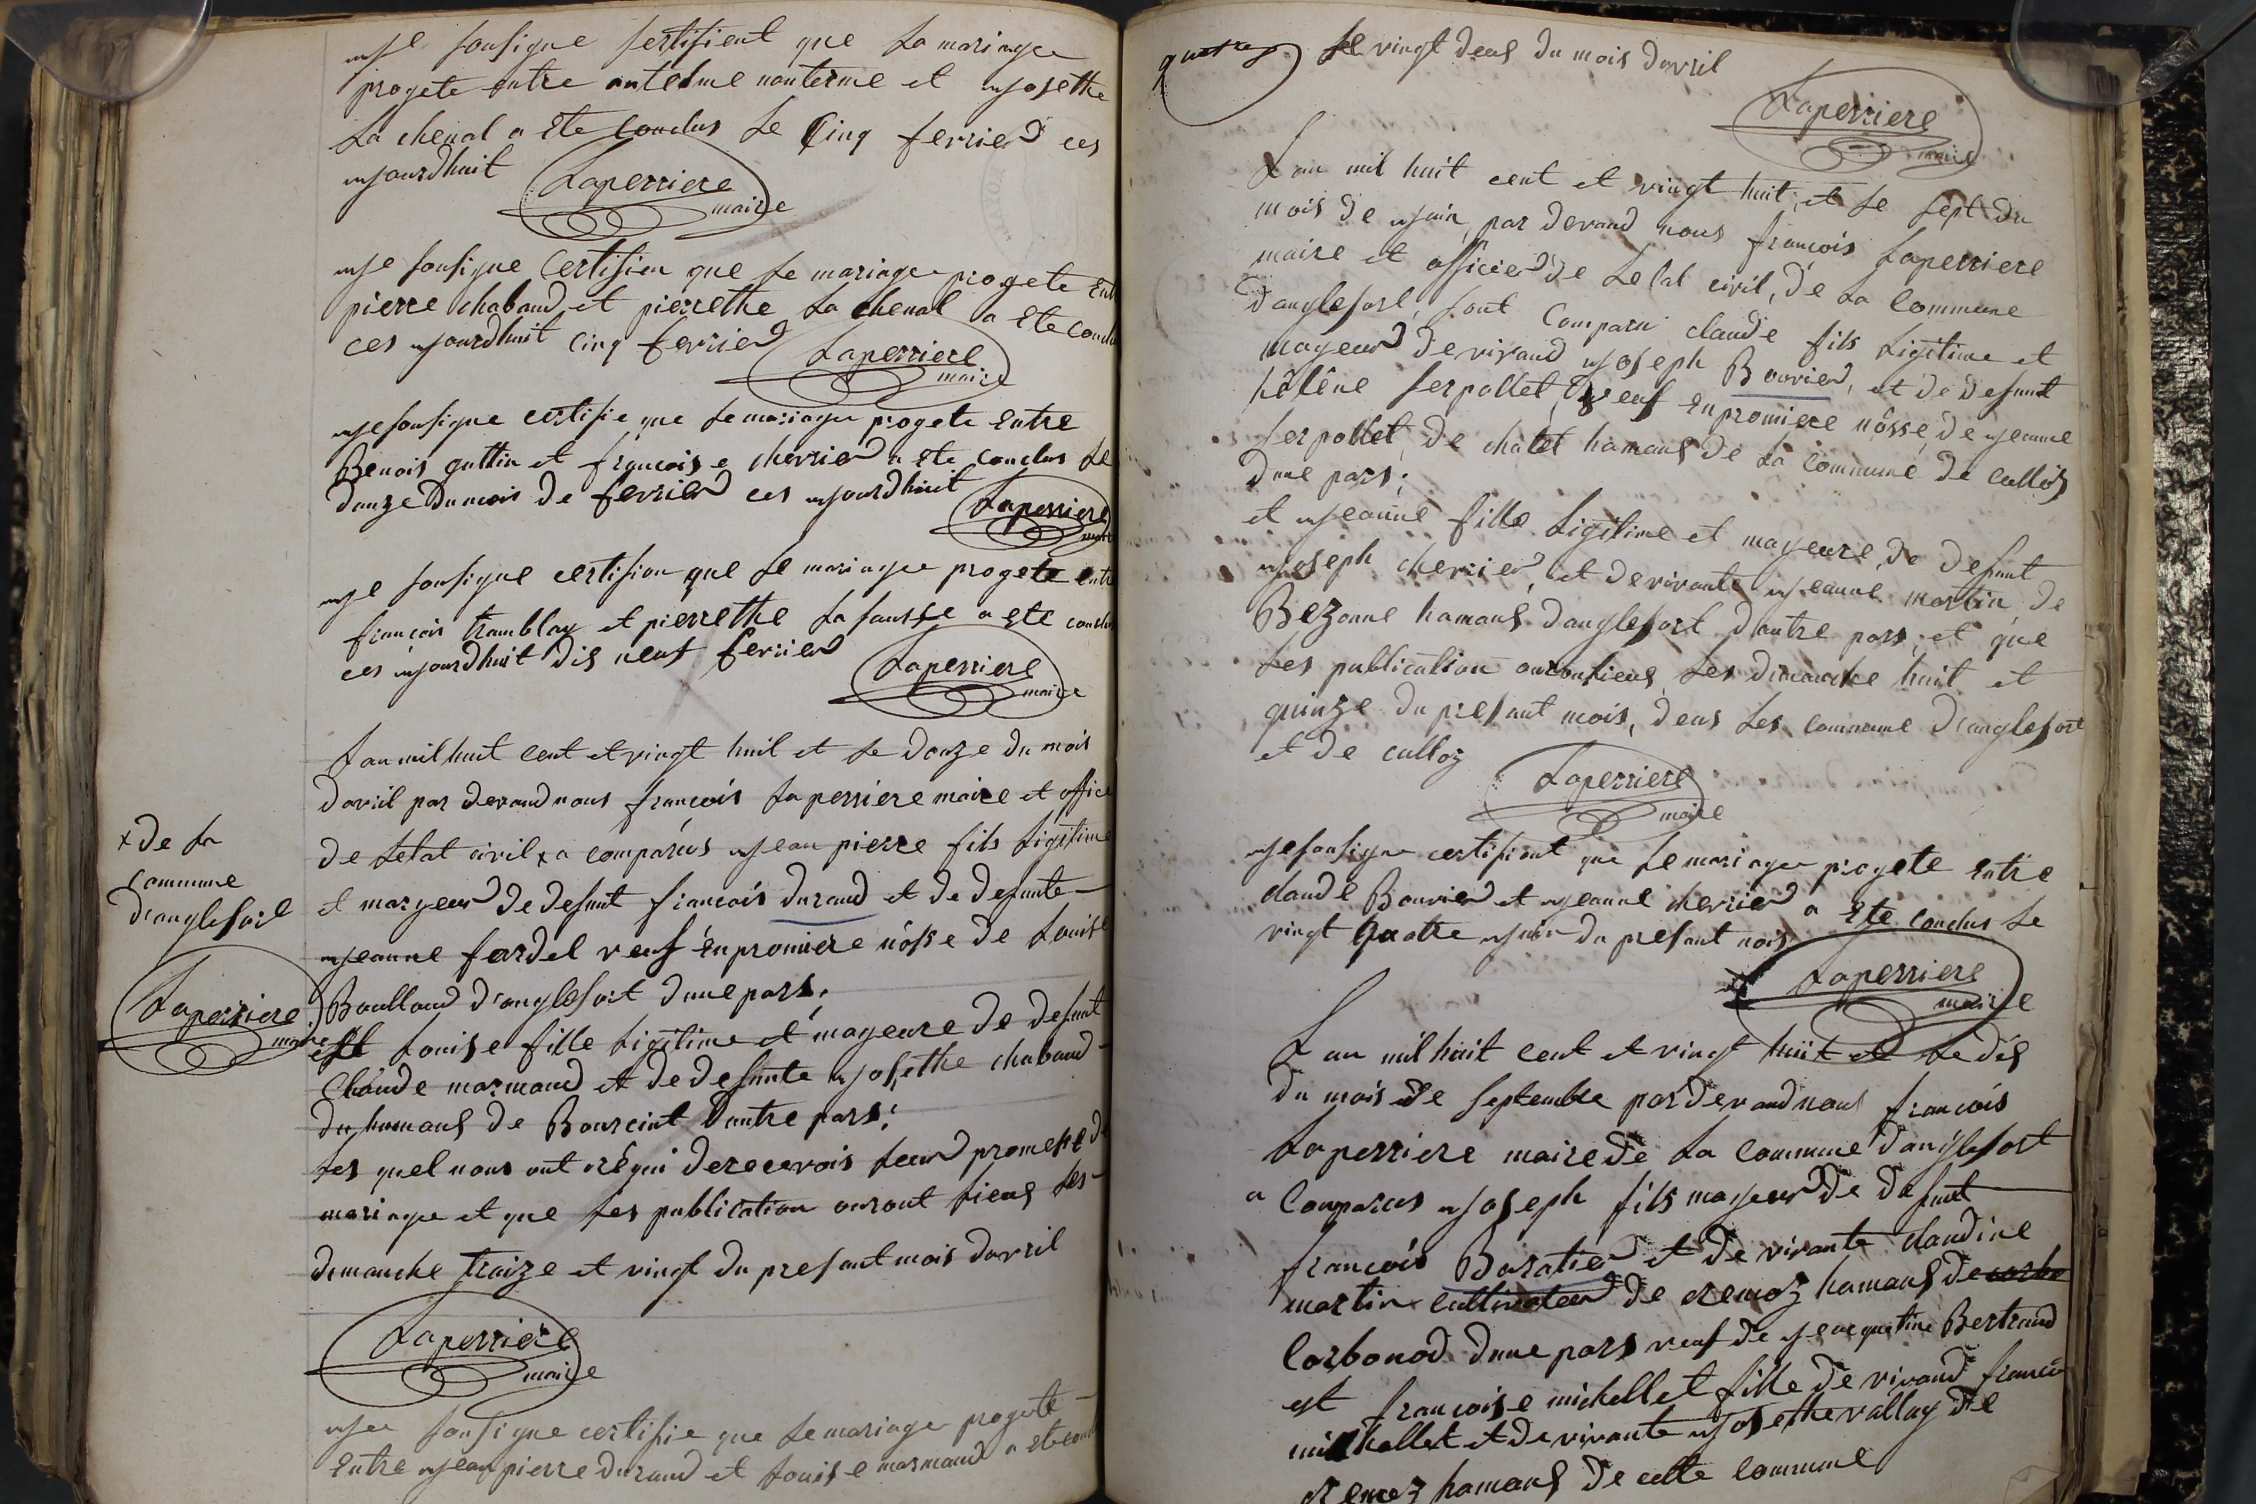 je sousigne sertifient que La mariage
progete entre antelme nanterme et josethe
La chenal a Ete Conclus Le Cinq ferrier ces
jourdhuit
Laperriere
maire
je sousigne Certifien que Le mariage progete Ent
pierre chaband et pierrethe La chenal a Ete conclu
ces jourdhuit Cinq ferrier
Laperriere
maire
je sousigne certifie que Le mariage progete Entre
Benois guttin et francoise cherrier a Ete conclus Le
douze Du mois De ferrier ces jourdhuit
Laperriere
maire
je sousigne certifion que Le mariage progete entre
francois tramblay et pierrethe La fausse a Ete conclus
ces jourdhuit dis neuf ferrier
Laperriere
maire
Lan mil huit cent et vingt huit et Le Douze Du mois
Davril par Devand nous francois Laperriere maire et office
De Letat civil x a comparus jean pierre fils Ligitime
x De La
commune
D'anglefort
Laperriere
maire
et mayeur De Defunt francois durand et De Defunte
jeanne fardel veuf En promiere nosse De Louise
Boulland D'anglefort Dune pars,
est Louise fille Ligitime et mayeure De Defunt
Claude marmand et De Defunte josethe chaband
du hamaus De Bourcint Dautre pars;
Les quel nous ont réqui De recevois Leur promesse De
mariage et que Les publication auront Lieus Les
Dimanche traize et vingt Du presant mois Davril
Laperriere
maire
je sousigne certifie que Le mariage progete
Entre jean pierre Durand et Louise marmand a ete conclu
Le vingt deus Du mois Davril
Laperriere
maire
Lan mil huit cent et vingt huit, et Le sept Du
mois De juin, par Devand nous francois Laperriere
maire et officier De Letat civil, De La Commune
D'anglefort, sont Comparu claude fils Ligitime et
mayeur De vivand joseph Bouvier, et De Defunt
hélêne serpollet, veuf En promiere nôsse, De jeanne
serpollet, De châtel hamaus De La commune De culloz
Dune pars;
et jeanne fille Ligitime et mayeure, De Defunt
joseph cherrier, et De vivante jeanne martin, De
Bezonne hamaus D'anglefort Dautre pars; et que
Les publication auront Lieus Les Dimanche huit et
quinze Du presant mois, Dans Les commune D'anglefort
et De culloz
Laperriere
maire
je sousigne certifient que Le mariage progete Entre
claude Bouvier et jeanne cherrier a Ete conclus Le
vingt quatre juin Du presant mois
Laperriere
maire
Lan mil huit cent et vingt huit et Le dis
Du mois De septembre par Devand nous francois
Laperriere maire De La Commune D'anglefort
a Comparus joseph fils mayeur De Defunt
francois Baratier et De vivante claudine
martin cultivateur De eremoz hamaus De corbo
Corbonod Dune pars veuf De jeacquetine Bertrand
est francoise michellet fille De vivand francois
michallet et De vivante josethe vallay De
eremoz hamaus De cette commune